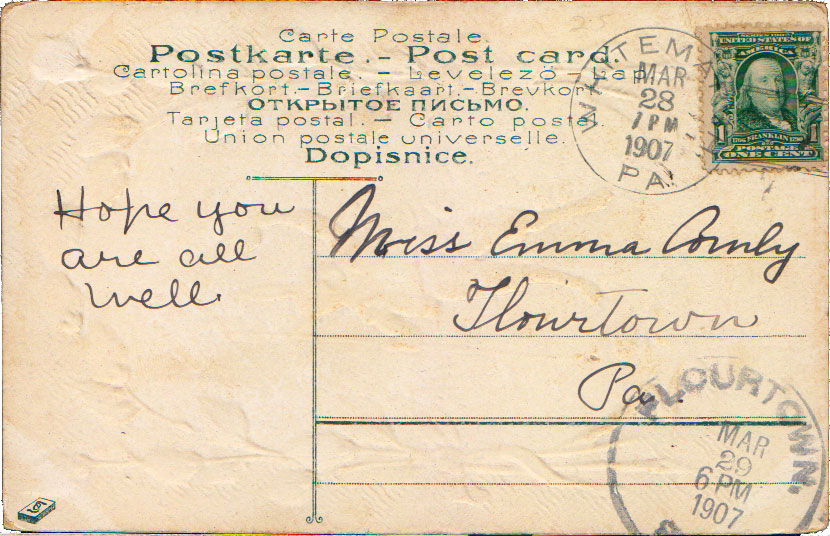 Carte Postale.
Postkarte. – Post card.
Cartolina postale. – Levelező – Lap.
Brefkort. – Briefkaart. – Brevkort
ОТКРЫТОЕ ПИСЬМО.
Tarjeta postal. – Carto posta
Union postale universelle.
Dopisnice.
MAR
28
7 PM
1907
PA.
SERIES 1902
UNITED STATES OF
AMERICA
FRANKLIN
1 POSTAGE 1
ONE CENT
Hope you
are all
well.
Miss Emma Comly
Flourtown
Pa.
FLOURTOWN,
MAR
29
6 PM
1907